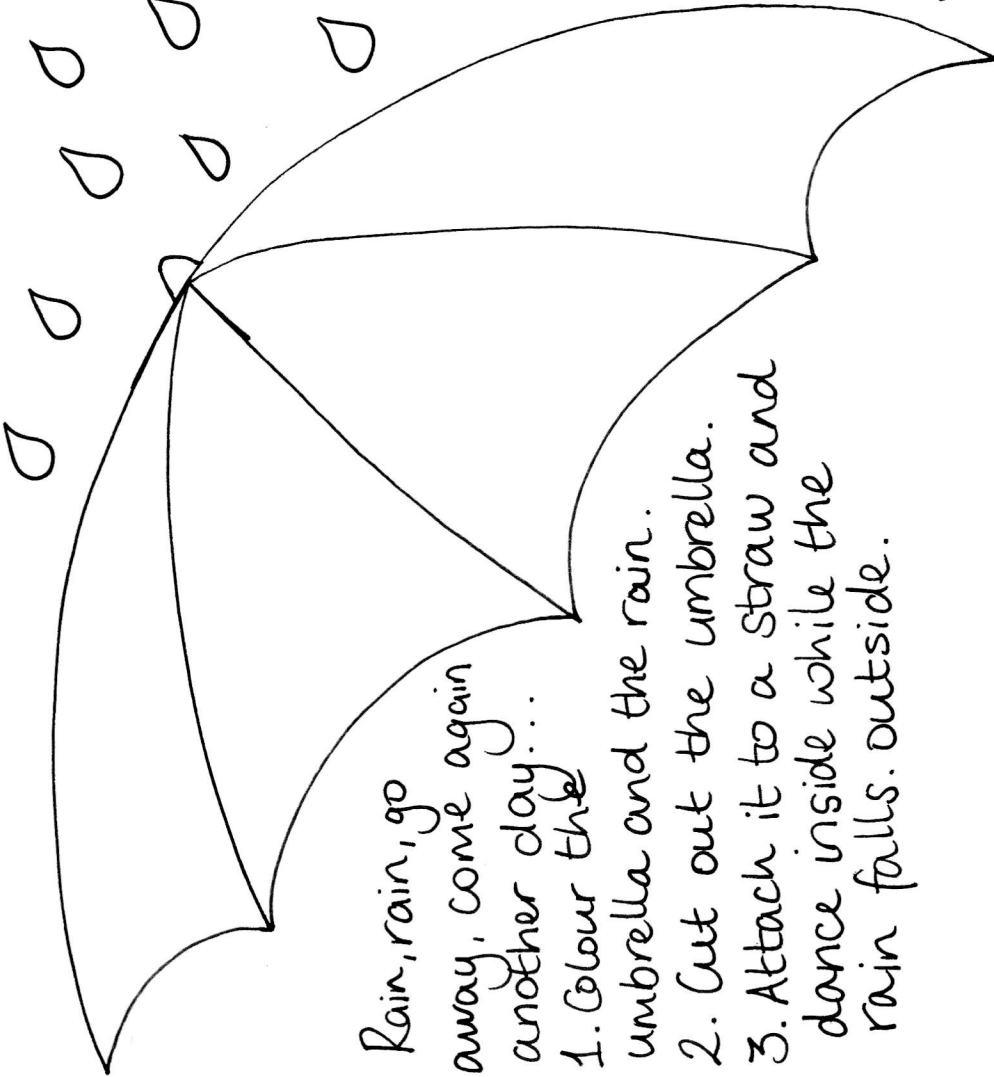 Rain, rain, go
away, come again
another day...
1. Colour the
umbrella and the rain.
2. Cut out the umbrella.
3. Attach it to a straw and
dance inside while the
rain falls. outside.